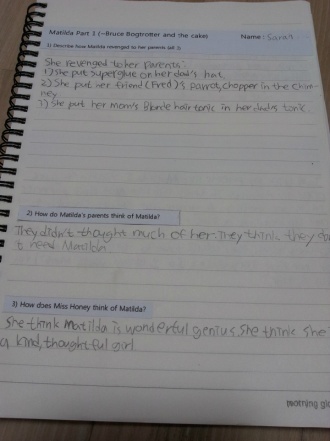 Matilda Part 1 (~Bruce Bogtrotter and the cake) Name: Sarah
1) Describe how Matilda revenged to her parents (all 3)
She revenged to her Parents:
1) She put superglue on her dad's hat.
2) She put her friend (Fred)'s parrot, chopper in the chim-
ney.
3) She put her mom's Blonde hair tonic in her dad's tonic.
2) How do Matilda's parents think of Matilda?
They didn't thought much of her. They think they don
t need Matilda.
3) How does Miss Honey think of Matilda?
She think Matilda is wonderful genius. She think she i
a kind, thoughtful girl